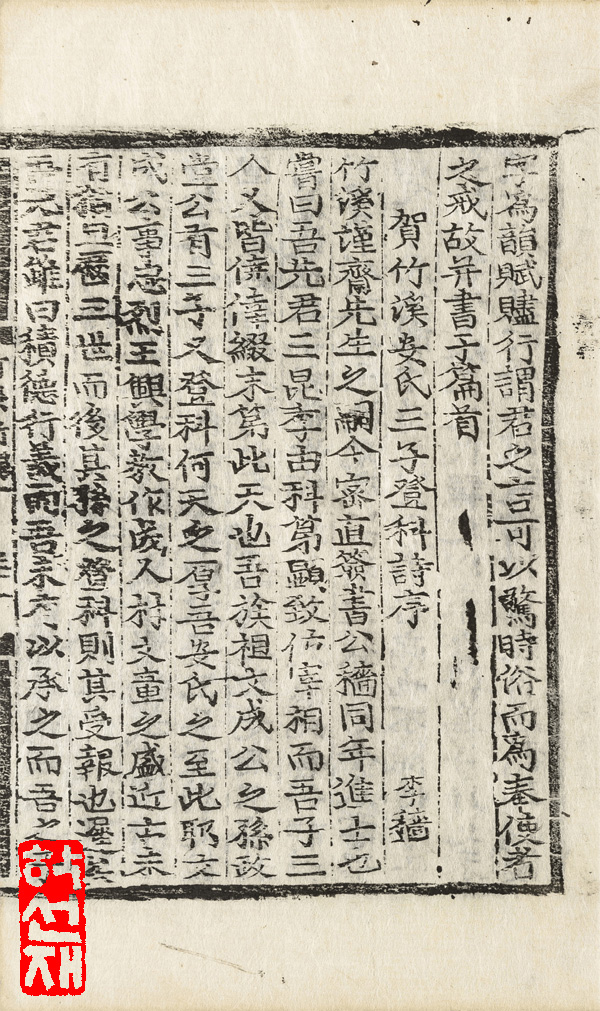 字爲韻賦贐行謂君之言可以驚時俗而爲奉使者
之戒故并書于篇首
賀竹溪安氏三子登科詩序 李穡
竹溪謹齋先生之嗣今密直簽書公穡同年進士也
嘗曰吾先君三昆季由科第顯致位宰相而吾子三
人又皆僥倖綴末第此天也吾族祖文成公之孫政
堂公有三子又登科何天之厚吾安氏之至此耶文
成公事忠烈王興學教作成人材文章之盛近古未
有猶且歷三世而後其孫之登科則其受報也遲矣
吾先君雖曰積德行義而吾未有以承之而吾之
학선재